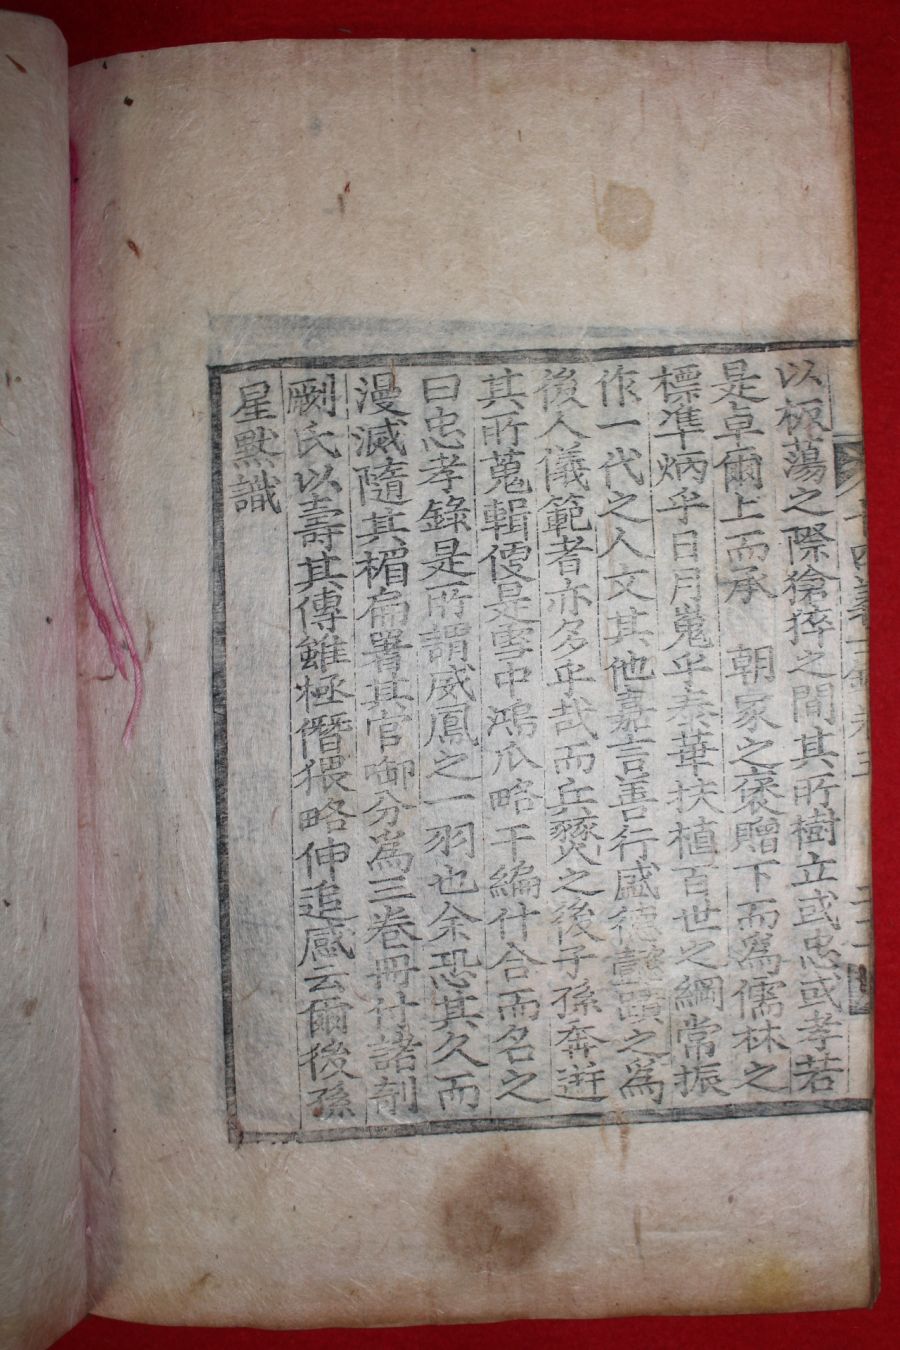 以板蕩之際獊猝之間其所樹立或忠或孝若
是卓爾上而承 朝家之褒贈下而爲儒林之
標準炳乎日月嵬乎泰華扶植百世之綱常振
作一代之人文其他嘉言善行盛德懿之爲
後人儀範者亦多乎哉而兵燹之後子孫奔迸
其所蒐輯僾是雪中鴻爪略干編什合而名之
曰忠孝錄是所謂威鳳之一羽也余恐其久而
漫滅隨其楣扁署其官啣分爲三卷冊付諸剞
劂氏以壽其傳雖極僭猥略伸追感云爾後孫
星黙識